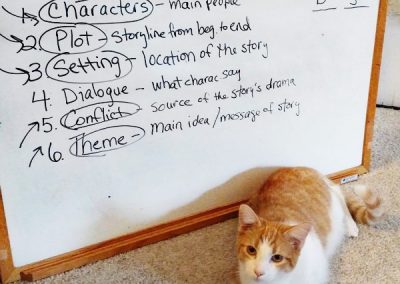 1. Characters - main people
2. Plot - storyline from beg. to end
3. Setting - location of the story
4. Dialogue - what charac. say
5. Conflict - source of the story's drama
6. Theme - main idea/message of story